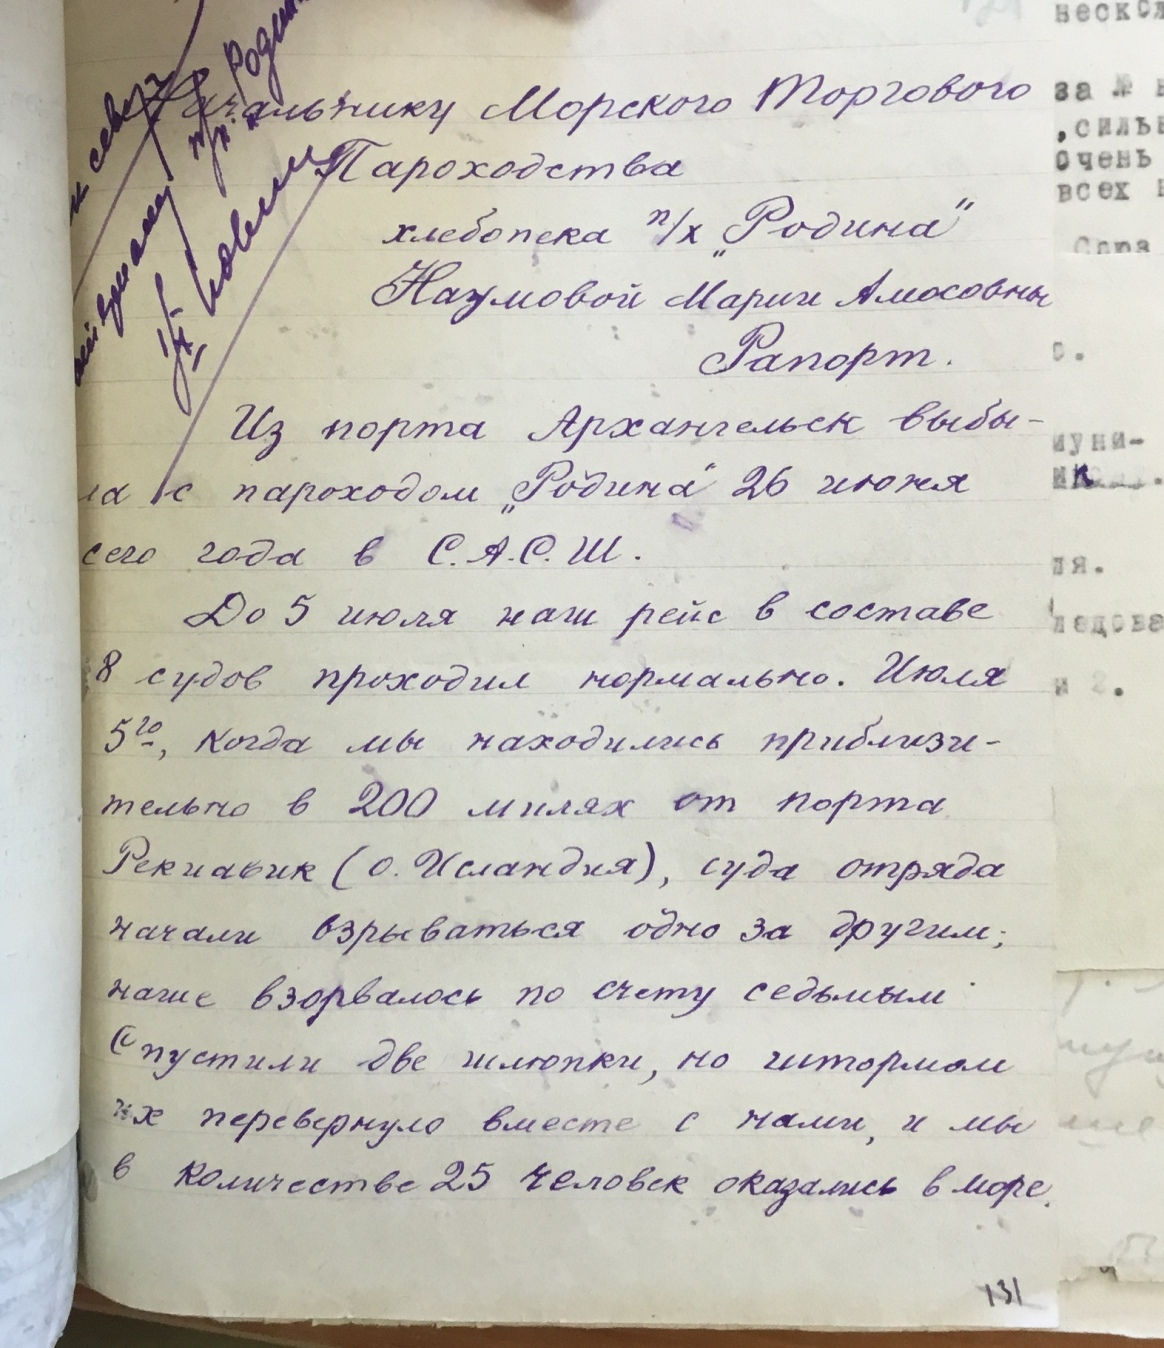 Начальнику Морского Торгового
Пароходства
хлебопека п/х „Родина“
Наумовой Марии Амосовны
Рапорт.
Из порта Архангельск выбы-
ла с пароходом „Родина“ 26 июня
сего года в С.А.С.Ш.
До 5 июля наш рейс в составе
8 судов проходил нормально. Июля
5го, когда мы находились приблизи-
тельно в 200 милях от порта
Рекиавик (о. Исландия), суда отряда
начали взрываться одно за другим;
наше взорвалось по счету седьмым.
Спустили две шлюпки, но штормом
их перевернуло вместе с нами, и мы
в количестве 25 человек оказались в море.
131
за №
очень
всех
муни-
ля.